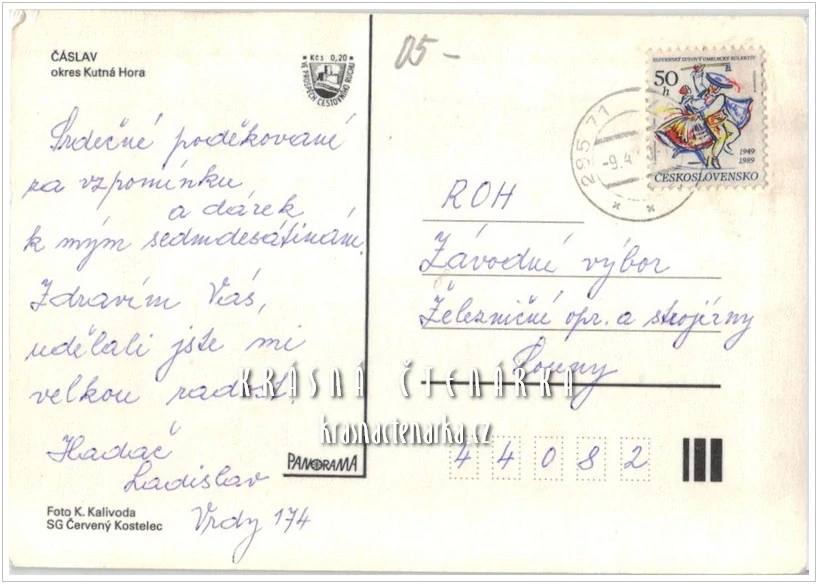 ČÁSLAV
okres Kutná Hora
Kčs 0,20
VE PROSPĚCH CESTOVNÍHO RUCHU
Srdečné poděkovaní
za vzpomínku
a dárek
k mým sedmdesátinám.
Zdravím Vás,
udělali jste mi
velkou radost.
Hadač
Ladislav
Vrdy 174
PANORAMA
Foto K. Kalivoda
SG Červený Kostelec
05-
SLOVENSKÝ ĽUDOVÝ UMELECKÝ KOLEKTÍV
50
h
1949
1989
ČESKOSLOVENSKO
295 71
-9.4
ROH
Závodné výbor
Železniční opr. a strojírny
Louny
44082
KRÁSNÁ ČTENÁŘKA
krasnactenarka.cz